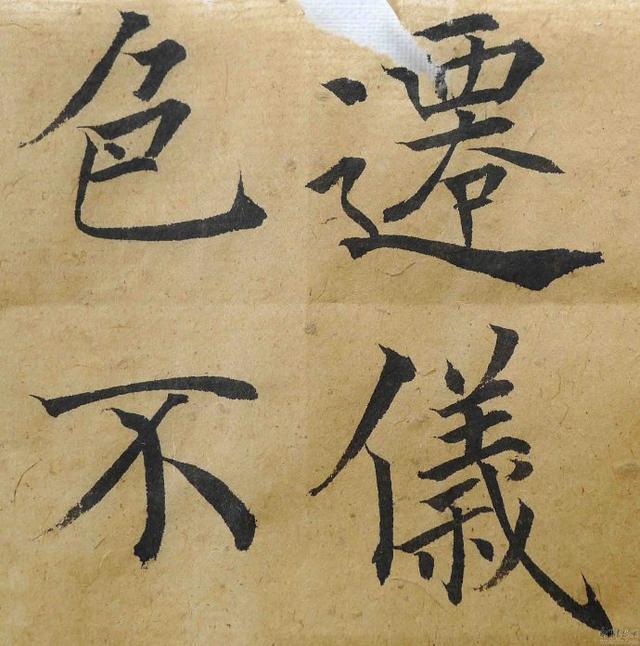 遷儀
色不